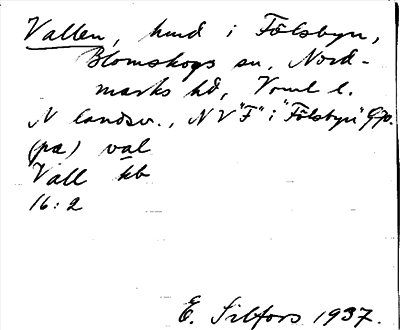 Vallen, hmd i Fölsbyn,
Blomskogs sn, Nord-
marks hd, Vrml l.
N landsv., NV "F" i "Fölsbyn" Gpo.
(pæ) val
Vall kb
16:2
E. Silfors 1937.